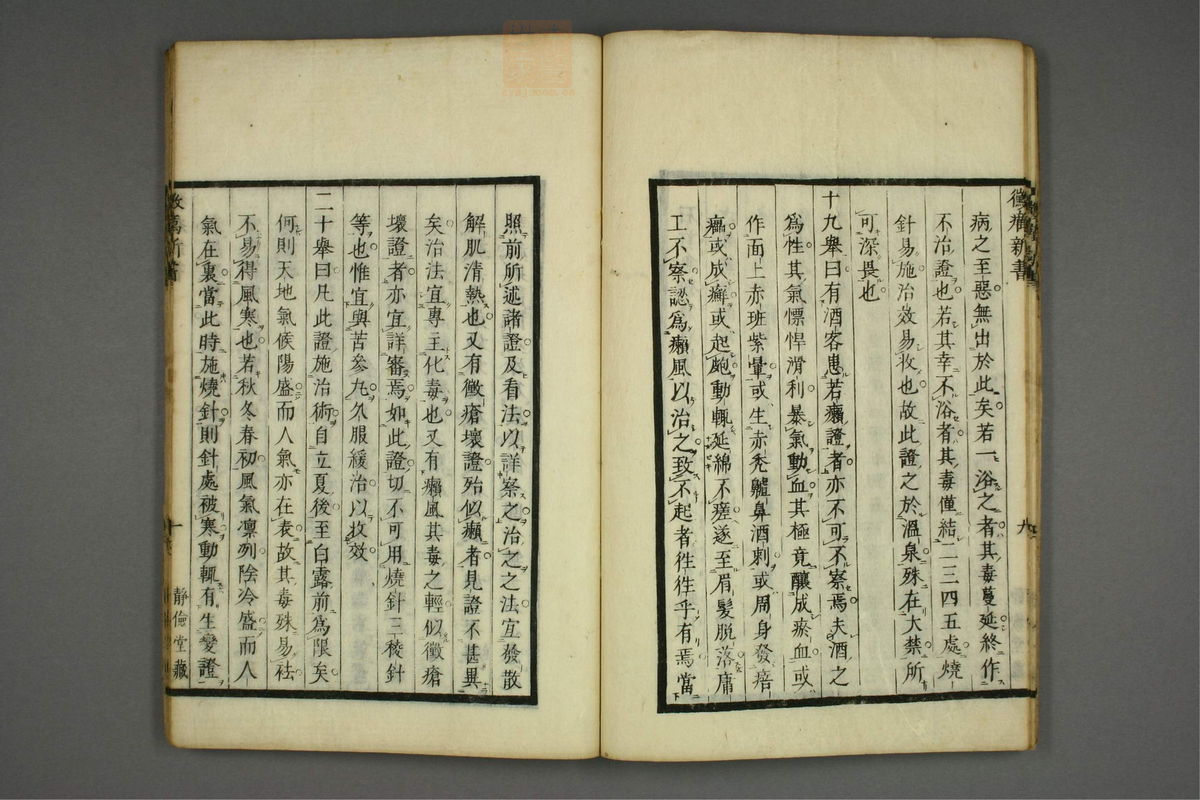 黴癘新書
病之至惡無出於此矣若一浴之者其毒蔓延終作
不治證也若其幸不浴者其毒僅結二三四五處燒
針易施治效易攷也故此證之於溫泉殊在大禁所
可深畏也
十九舉曰有酒客患若癩證者亦不可不察焉夫酒之
爲性其氣慓悍滑利暴氣動血其極竟釀成瘀血或
作面上赤班紫暈或生赤禿軆鼻酒刺或周身發㾦
癗或成癬或起皰動輒延綿不瘥遂至眉髮脫落庸
工不察認爲癩風以治之致不起者徃徃乎有焉當
九
照前所述諸證及看法以詳察之治之之法宜發散
解肌清熱也又有黴瘡壞證殆似癩者見證不甚異
矣治法宜專主化毒也又有癩風其毒之輕似黴瘡
壞證者亦宜詳審焉如此證切不可用燒針三稜針
等也惟宜與苦參丸久服緩治以攷效
二十舉曰凡此證施治術自立夏後至白露前爲限矣
何則天地氣候陽盛而人氣亦在表故其毒殊易祛
不易得風寒也若秋冬春初風氣凛列陰冷盛而人
氣在裏當此時施燒針則針處被寒動輒有生變證
靜儉堂藏